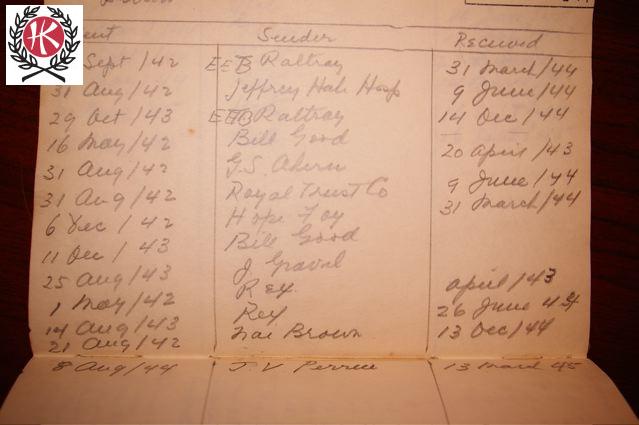 HK
ent Sender Received
Sept/42 EEB Raltray 31 March/44
31 Aug/42 Jeffrey Hale Hosp 9 June/44
29 Oct/43 EEB Raltray 14 Dec/44
16 May/42 Bill Good
31 Aug/42 G.S. Ahern 20 April/43
31 Aug/42 Royal Trust Co 9 June/44
6 Dec/42 Hope Foy 31 March/44
11 Dec/43 Bill Good
25 Aug/43 J
1 May/42 Rex April/43
14 Aug/43 Rex 26 June 44
21 Aug/42 Brown 13 Dec/44
8 Aug/44 J V 13 March 45